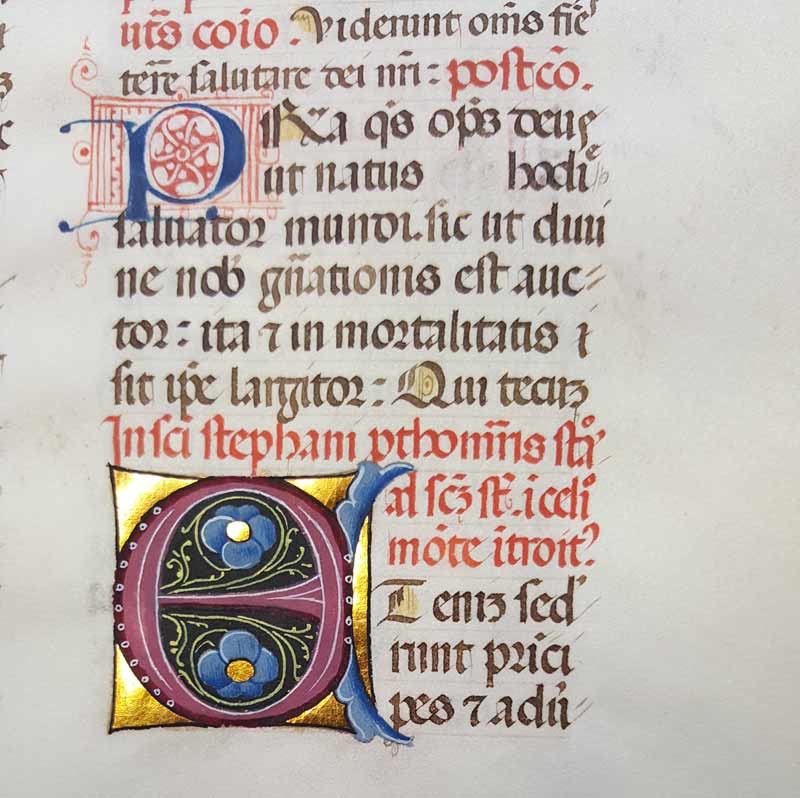 uts coio. Viderunt oms fie
tere salutare dei nri: postco.
PRSta qs ops deus
ut natus hodie
saluator mundi. sic ut diui
ne nob gnationis est auc-
tor: ita ⁊ in mortalitatis
sit ipe largitor: Qui tecum
In sci stephani pthomris sta
al scm st. i celi
mote itroit.
ET enim sed
runt prici
pes ⁊ adu